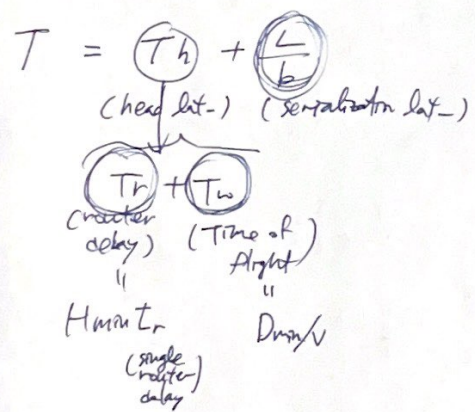 T = Th + L/b
(head lat-) (serialization lat-)
Tr + Tw
(router delay) (Time of flight)
" "
Hmin tr Dmin/v
(single router delay)